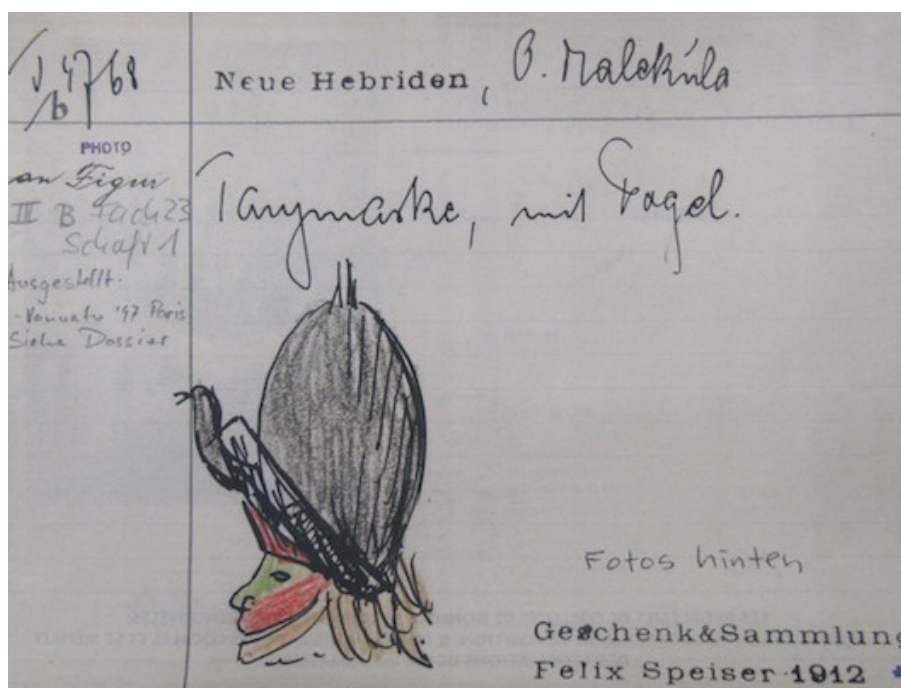 Neue Hebriden, O. Malekula
PHOTO
an Figur
III B Fach 23
Schaft 1
Ausgestellt:
- Vanuatu '97 Paris
Siehe Dossier
Tanzmaske, mit Vogel.
Fotos hinten
Geschenk&Sammlung
Felix Speiser 1912